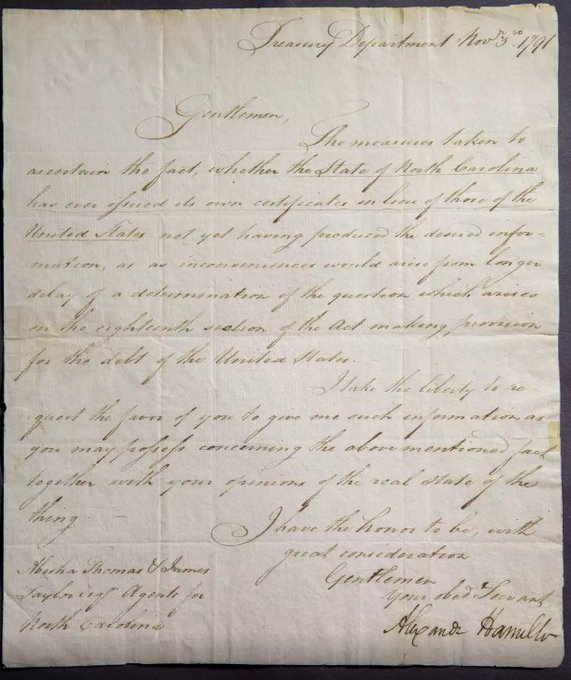 Treasury Department Nov 3 1791
Gentlemen,
The measures taken to
ascertain the fact, whether the State of North Carolina
has ever issued its own certificates in lieu of those of the
United States not yet having produced the desired infor-
mation, as as inconveniences would arise from longer
delay of a determination of the question which arises
on the eighteenth section of the Act making provision
for the debt of the United States.
I take the liberty to re-
quest the favor of you to give me such information as
you may possess concerning the above mentioned fact
together with your opinions of the real state of the
thing.
I have the honor to be, with
great consideration
Gentlemen
Your obedt Servant
Alexandr Hamilton
Abisha Thomas & James
Taylor Esqr Agents for
North Carolina